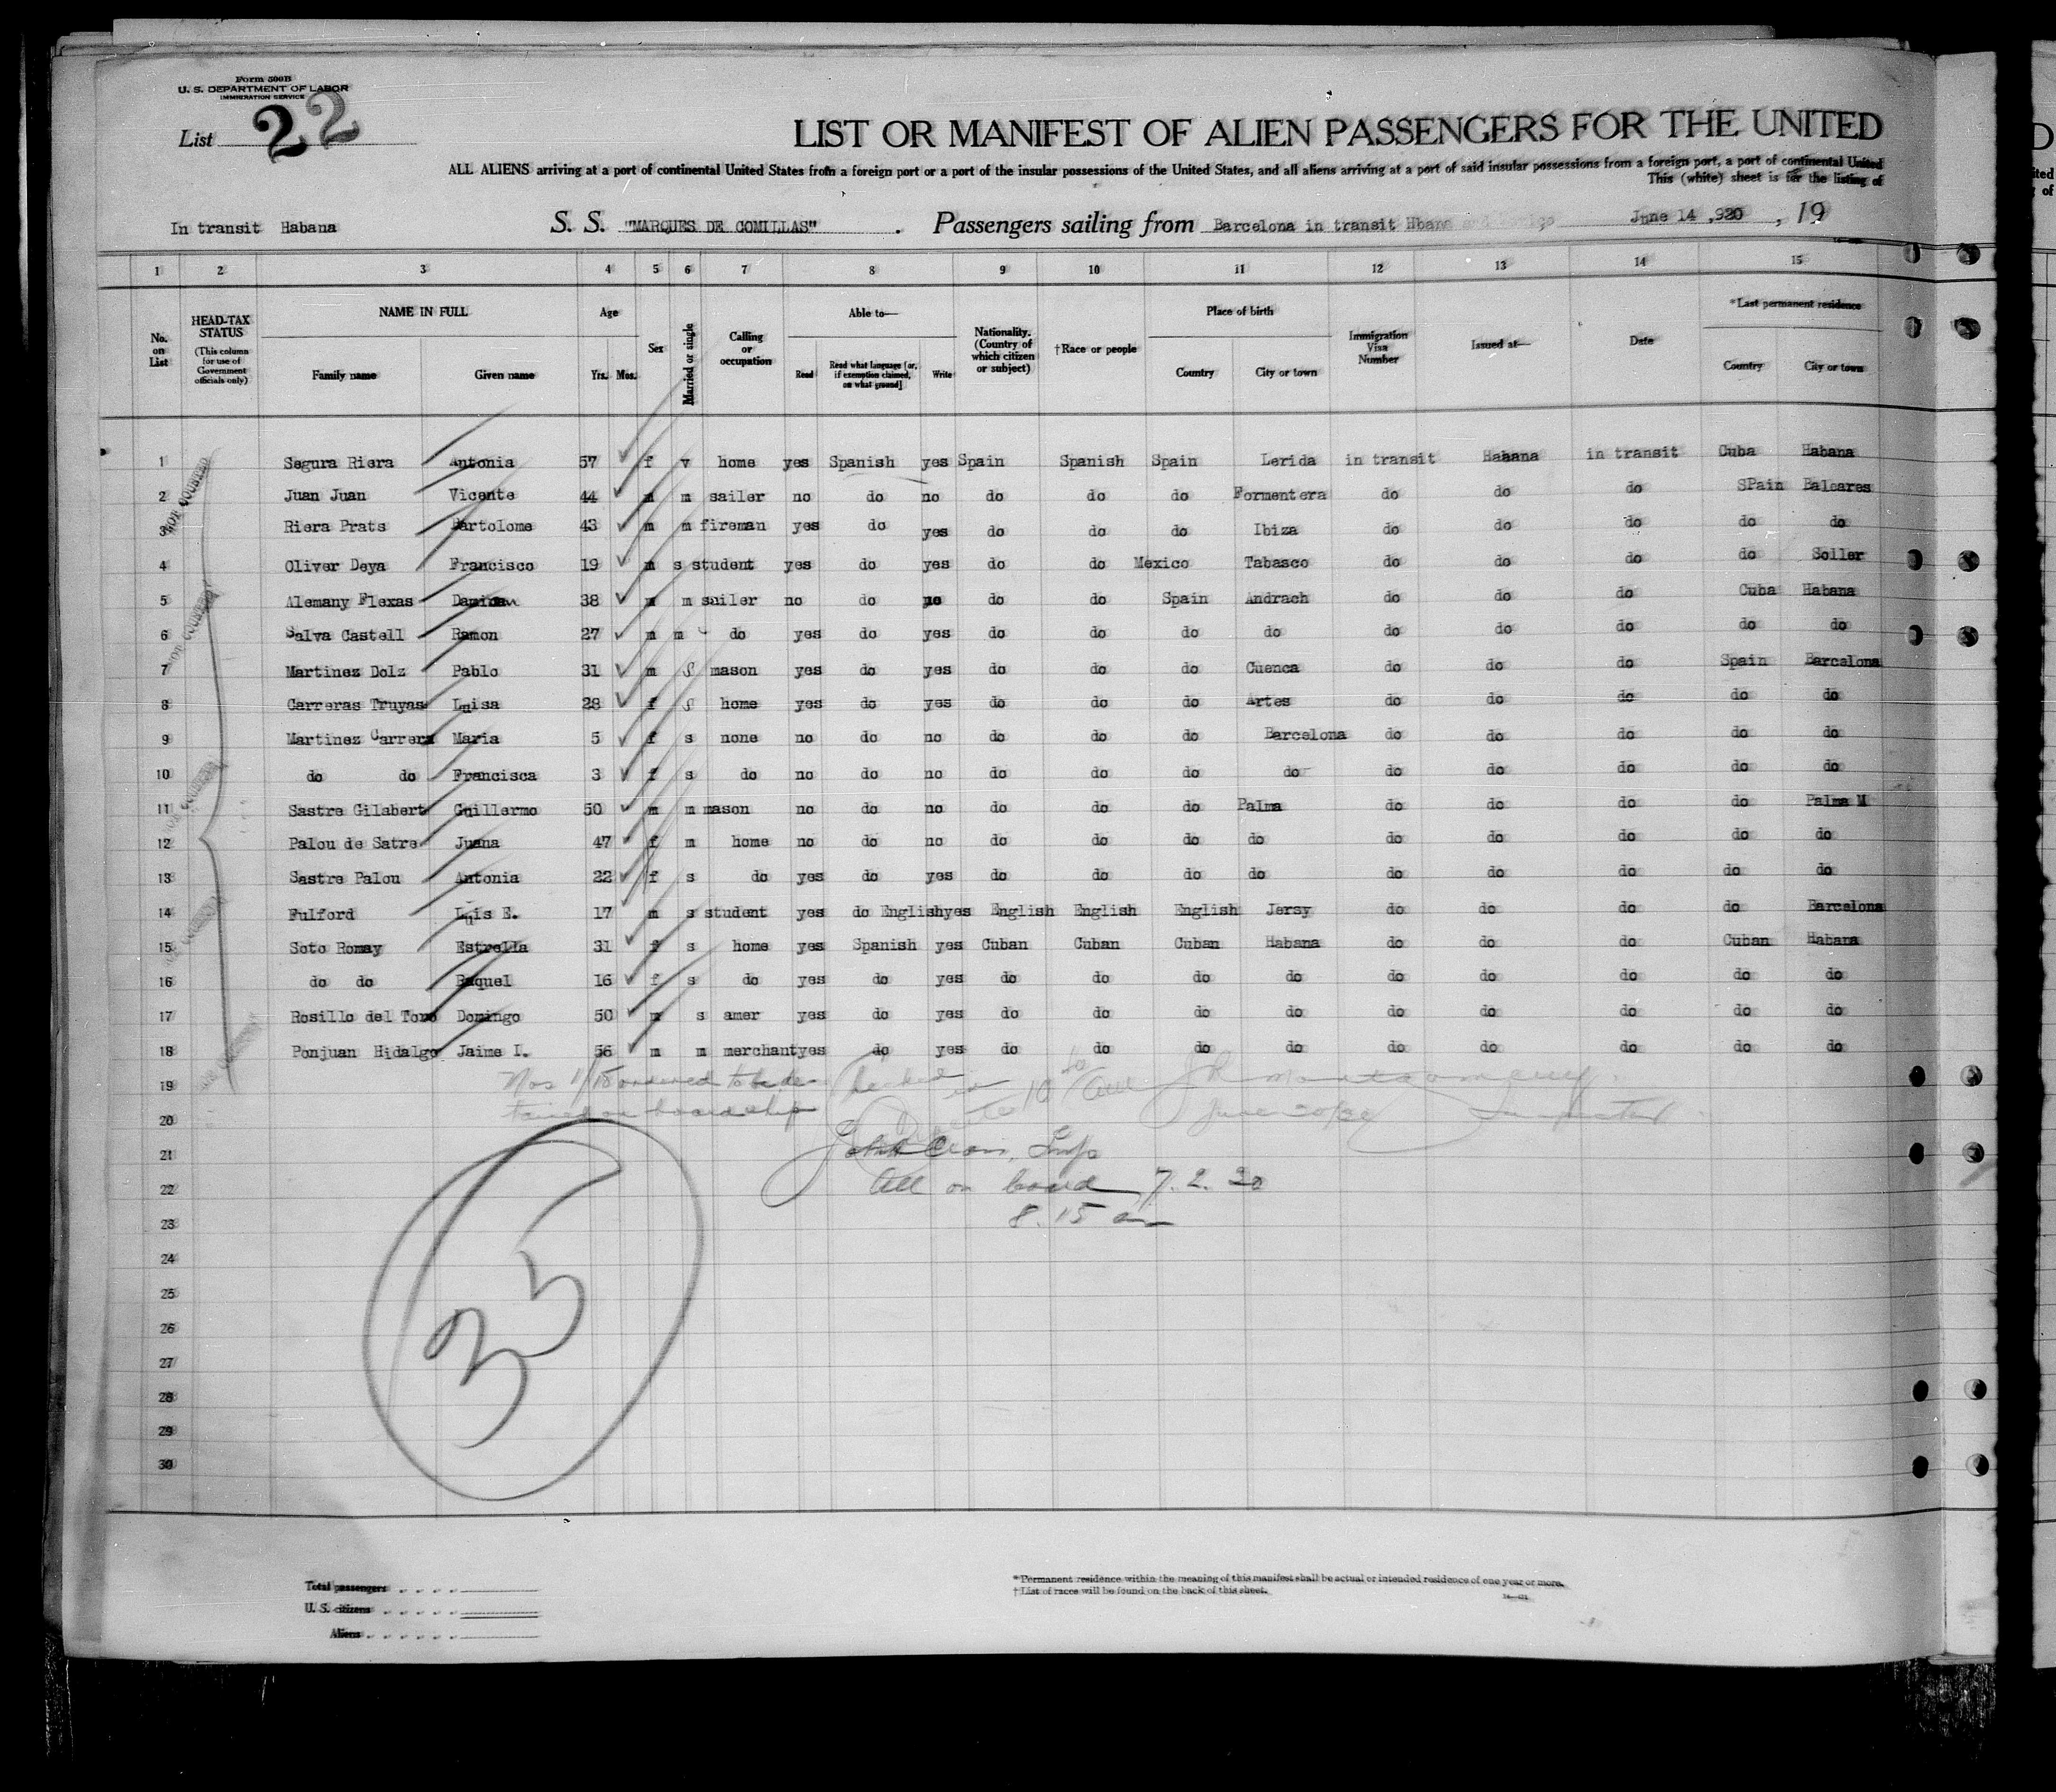 Form 500B
U. S. DEPARTMENT OF LABOR
IMMIGRATION SERVICE
List 22
LIST OR MANIFEST OF ALIEN PASSENGERS FOR THE UNITED
ALL ALIENS arriving at a port of continental United States from a foreign port or a port of the insular possessions of the United States, and all aliens arriving at a port of said insular possessions from a foreign port, a port of continental United
This (white) sheet is for the listing of
In transit Habana S. S. "MARQUES DE COMILLAS". Passengers sailing from Barcelona in transit Hbana June 14 ,920 , 19
1 2 3 4 5 6 7 8 9 10 11 12 13 14 15
No. on List
HEAD-TAX STATUS (This column for use of Government officials only)
NAME IN FULL Family name Given name
Age Yrs. Mos.
Sex
Married or single
Calling or occupation
Able to— Read Read what language [or, if exemption claimed, on what ground] Write
Nationality. (Country of which citizen or subject)
†Race or people
Place of birth Country City or town
Immigration Visa Number
Issued at—
Date
*Last permanent residence Country City or town
1 Segura Riera Antonia 57 f v home yes Spanish yes Spain Spanish Spain Lerida in transit Habana in transit Cuba Habana
2 Juan Juan Vicente 44 m m sailer no do no do do do Formentera do do do SPain Baleares
3 Riera Prats Bartolome 43 m m fireman yes do yes do do do Ibiza do do do do do
4 Oliver Deya Francisco 19 m s student yes do yes do do Mexico Tabasco do do do do Soller
5 Alemany Flexas Damian 38 m m sailer no do no do do Spain Andrach do do do Cuba Habana
6 Salva Castell Ramon 27 m m do yes do yes do do do do do do do do do
7 Martinez Dolz Pablo 31 m S mason yes do yes do do do Cuenca do do do Spain Barcelona
8 Carreras Truyas Luisa 28 f S home yes do yes do do do Artes do do do do do
9 Martinez Carrera Maria 5 f s none no do no do do do Barcelona do do do do do
10 do do Francisca 3 f s do no do no do do do do do do do do do
11 Sastre Gilabert Guillermo 50 m m mason no do no do do do Palma do do do do Palma M
12 Palou de Satre Juana 47 f m home no do no do do do do do do do do do
13 Sastre Palou Antonia 22 f s do yes do yes do do do do do do do do do
14 Fulford Luis E. 17 m s student yes do English yes English English English Jersy do do do do Barcelona
15 Soto Romay Estrella 31 f s home yes Spanish yes Cuban Cuban Cuban Habana do do do Cuban Habana
16 do do Raquel 16 f s do yes do yes do do do do do do do do do
17 Rosillo del Toro Domingo 50 m s amer yes do yes do do do do do do do do do
18 Ponjuan Hidalgo Jaime I. 56 m m merchant yes do yes do do do do do do do do do
19 Nos 1/18 ordered to be de- Checked
20 tained on board ship
21 John
22 All on board 7. 2. 30
23 8. 15 am
24
25
26
27
28
29
30
35
Total passengers
U. S. citizens
Aliens
*Permanent residence within the meaning of this manifest shall be actual or intended residence of one year or more.
†List of races will be found on the back of this sheet.